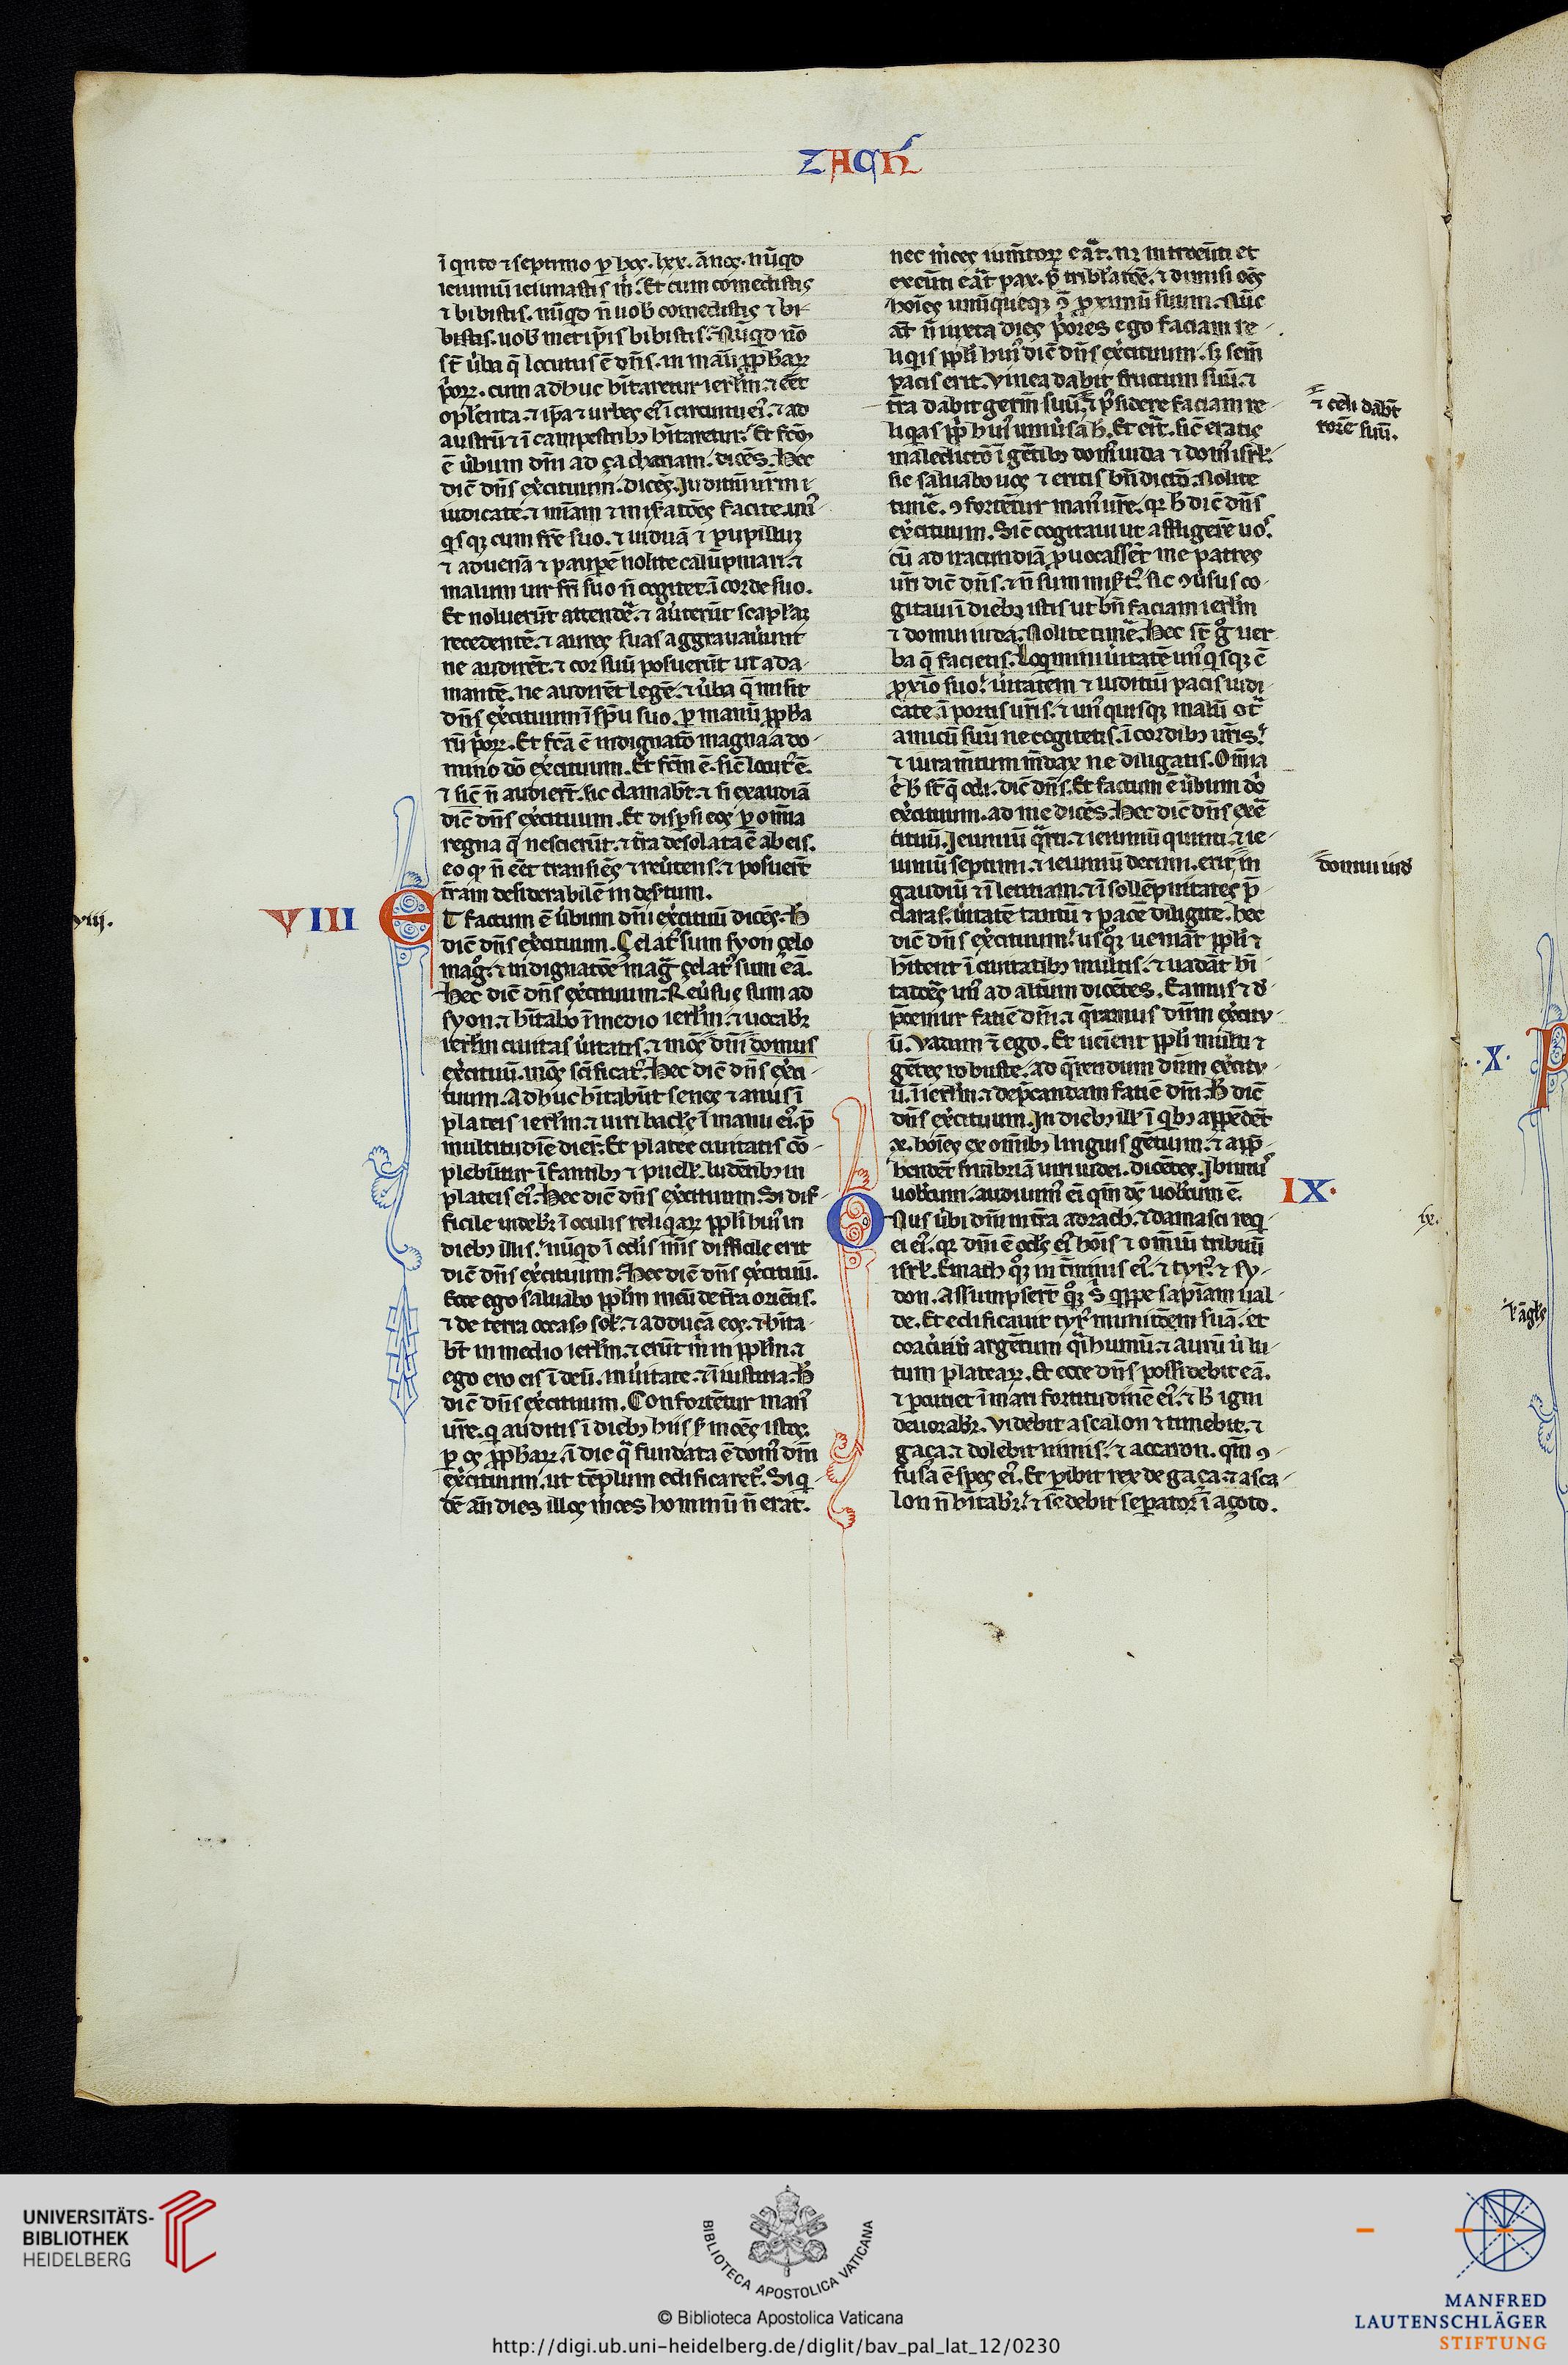 ZACH
ī qnto ⁊ septimo ꝑ hos. lxx. ānos. nūqͥd
ieiuniū ieiunastis m̄. Et cum comedistis
⁊ bibistis. nūqͥd n̄ uob comedistis ⁊ bi-
bistis. uob metip̄is bibistis. Nūqͥd nō
st̄ ūba q̄ locutus ē dn̄s. in manū ꝓph̄aꝝ
p̄oꝝ. cum adhuc hītaretur ierl̄m. ⁊ eēt
opl̄enta. ⁊ ip̄a ⁊ urbes eiꝰ ī circuitu eiꝰ. ⁊ ad
austrū ⁊ ī campestribꝫ hītaretur. Et fc̄m
ē ūbum dn̄i ad çachariam. dicēs. Hec
dic̄ dn̄s ex̄cituum. dicēs. Judiciū ūrm i
iudicate. ⁊ mīam ⁊ mis̄atōes facite. unꝰ-
qͥsqꝫ cum fr̄e suo. ⁊ uiduā ⁊ pupillū
⁊ aduenā ⁊ paupē nolite calūpniari. ⁊
malum uir fr̄i suo n̄ cogitet. ī corde suo.
Et noluerūt attendē. ⁊ auerterūt scapl̄aꝫ
recedentē. ⁊ aures suas aggrauauerunt
ne audirēt. ⁊ cor suū posuerūt ut ada-
mantē. ne audirēt legē. ⁊ ūba q̄ misit
dn̄s ex̄cituum ī sp̄u suo. ꝑ manū ꝓph̄a
rū p̄oꝝ. Et fc̄a ē indignatō magna a do-
mino dō ex̄cituum. Et fc̄m ē. sic̄ locutꝰ ē.
⁊ sic̄ n̄ audier̄t. sic clamabt̄. ⁊ n̄ exaudiā
dic̄ dn̄s ex̄cituum. Et disp̄si eos ꝑ omīa
regna q̄ nescierūt. ⁊ tr̄a desolata ē ab eis.
eo ꝙ n̄ eēt transiēs ⁊ reūtens. ⁊ posuer̄t
tr̄am desiderabilē in des̄tum.
VIII
viij.
ET factum ē ūbum dn̄i ex̄cituū dicēs. H̄
dic̄ dn̄s ex̄cituum. Celatꝰ sum syon çelo
magͦ. ⁊ indignatōe maḡ çelatꝰ sum eā.
Hec dic̄ dn̄s ex̄cituum. Reūsus sum ad
syon. ⁊ hītabo ī medio ierl̄m. ⁊ uocabꝛ
ierl̄m ciuitas ūitatis. ⁊ mōs dn̄i domus
ex̄cituū. mōs sc̄ificatꝰ. Hec dic̄ dn̄s ex̄ci-
tuum. Adhuc hītabūt senes ⁊ anus ī
plateis ierl̄m. ⁊ uiri baclꝰs ī manu eiꝰ. p̄
multitudīe dieꝝ. Et platee ciuitatis cō-
plebūtur īfantibꝫ ⁊ puell̄. ludētibꝫ in
plateis eiꝰ. Hec dic̄ dn̄s ex̄cituum. Si dif-
ficile uidebꝛ ī oculis reliqͥaꝝ ppl̄i huiꝰ in
diebꝫ illis. nūqͥd ī oclis mīs difficile erit
dic̄ dn̄s ex̄cituum. Hec dic̄ dn̄s ex̄cituū.
Ecce ego saluabo ppl̄m meū de tr̄a oriētis.
⁊ de terra occasꝰ sol̄. ⁊ adducā eos. ⁊ hīta-
bt̄ in medio ierl̄m. ⁊ erūt m̄ in ppl̄m. ⁊
ego ero eis ī deū. in ūitate. ⁊ ī iustitia. H̄
dic̄ dn̄s ex̄cituum. Confortētur manꝰ
ur̄e. qͥ auditis ī diebꝫ hiis s̄mōes istos.
ꝑ os ꝓph̄aꝝ. ī die qͣ fundata ē domꝰ dn̄i
ex̄cituum. ut tēplum edificaretꝰ. Siqͥ-
dē an̄ dies illos m̄ces hominū n̄ erat.
nec m̄ces iumētoꝝ erat. nꝫ introeūti et
exeūti erat pax. p̄ tribl̄atōe. ⁊ dimisi oēs
hoīes unūquēqꝫ 9̄ ꝓximū suum. Nūc
āt n̄ iuxta dies p̄ores ego faciam re-
liqͥis ppl̄i huiꝰ dic̄ dn̄s ex̄cituum. sꝫ sem̄
pacis erit. Vinea dabit fructum suū. ⁊
tr̄a dabit germ̄ suū. ⁊ p̄sidere faciam re-
⁊ celi dabt̄
rorē suū.
liqͥas ppl̄i huiꝰ uniūsa h̄. Et erit. sic̄ eratis
maledictō ī gētibꝫ domꝰ iuda ⁊ domꝰ isrl̄.
sic saluabo uos ⁊ eritis bn̄dictō. Nolite
timē. 9fortētur manꝰ ur̄e. qꝛ h̄ dic̄ dn̄s
ex̄cituum. Sic̄ cogitaui ut affligere uos
cū ad iracūdiā ꝓuocassēt me patres
ur̄i dic̄ dn̄s. ⁊ n̄ sum mis̄tꝰ. sic 9ūsus co-
gitaui ī diebꝫ istis ut bn̄faciam ierl̄m
⁊ domui iuda. Nolite timē. Hec st̄ gͦ uer
ba q̄ facietis. Loqͥmini ūitatē unꝰqͥsqꝫ cū
ꝓxīo suo. ūitatem ⁊ iuditiū pacis iudi-
cate. ī portis ur̄is. ⁊ unꝰquisqꝫ malū 9tͣ
amicū suū ne cogitetis. ī cordibꝫ ur̄is.
⁊ iuram̄tum m̄dax ne diligatis. Omīa
ē h̄ st̄ q̄ odi. dic̄ dn̄s. Et factum ē ūbum dn̄i
ex̄cituum. ad me dicēs. Hec dic̄ dn̄s ex̄-
cituū. Jeiuniū qͣrti. ⁊ ieiuniū quinti. ⁊ ie-
iuniū septimi. ⁊ ieiuniū decimi. erit in
domui iud̄
gaudiū ⁊ ī letitiam. ⁊ ī sollēpnitates p̄-
claras. ūitatē tantū ⁊ pacē diligite. Hec
dic̄ dn̄s ex̄cituum. usqꝫ ueniāt ppl̄i ⁊
hītent ī ciuitatibꝫ multis. ⁊ uadāt hī-
tatōes unꝰ ad altum dicētes. Eamus ⁊ d̄-
p̄cemur faciē dn̄i. ⁊ q̄ramus dn̄m ex̄citu-
ū. Vadam ⁊ ego. Et ueīent ppl̄i multi ⁊
gētes robuste. ad q̄rendum dn̄m ex̄citu-
ū. ī ierl̄m. ⁊ dep̄candam faciē dn̄i. H̄ dic̄
dn̄s ex̄cituum. In diebꝫ ill̄ ī qͥbꝫ app̄hēdēt
.x. hoīes ex omībꝫ linguis gētium. ⁊ app̄-
hendēt fimbriā uiri iudei. dicētes. Ibimꝰ
uobcum. audiuimꝰ eī qm̄ dꝫ uobcum ē.
IX.
ix.
ONus ūbi dn̄i in tr̄a adrach. ⁊ damasci reqͥ-
ei eiꝰ. qꝛ dn̄i ē oclꝰs eiꝰ hoīs ⁊ omniū tribuū
isrl̄. Emath qͦqꝫ in t̄minis eiꝰ. ⁊ tyrꝰ. ⁊ sy-
don. Assumpser̄t qͦqꝫ s̄ qͥppe sapīam ual-
de. Et edificauit tyrꝰ munitōem suā. et
coac̄uit argētum qͣi humū. ⁊ aurū ū lu-
tum plateaꝝ. Et ecce dn̄s possidebit eā.
⁊ ꝑcutiet ī mari fortitudinē eiꝰ. ⁊ h̄ igni
deuorabꝛ. Videbit ascalon ⁊ timebit. ⁊
gaça. ⁊ dolebit nimis. ⁊ accaron. qm̄ 9-
fusa ē spes eiꝰ. Et ꝑibit rex de gaça. ⁊ asca-
lon n̄ hītabꝛ. ⁊ sedebit seꝑator ī açoto.
.X.
UNIVERSITÄTS-
BIBLIOTHEK
HEIDELBERG
BIBLIOTECA APOSTOLICA VATICANA
© Biblioteca Apostolica Vaticana
http://digi.ub.uni-heidelberg.de/diglit/bav_pal_lat_12/0230
MANFRED
LAUTENSCHLÄGER
STIFTUNG